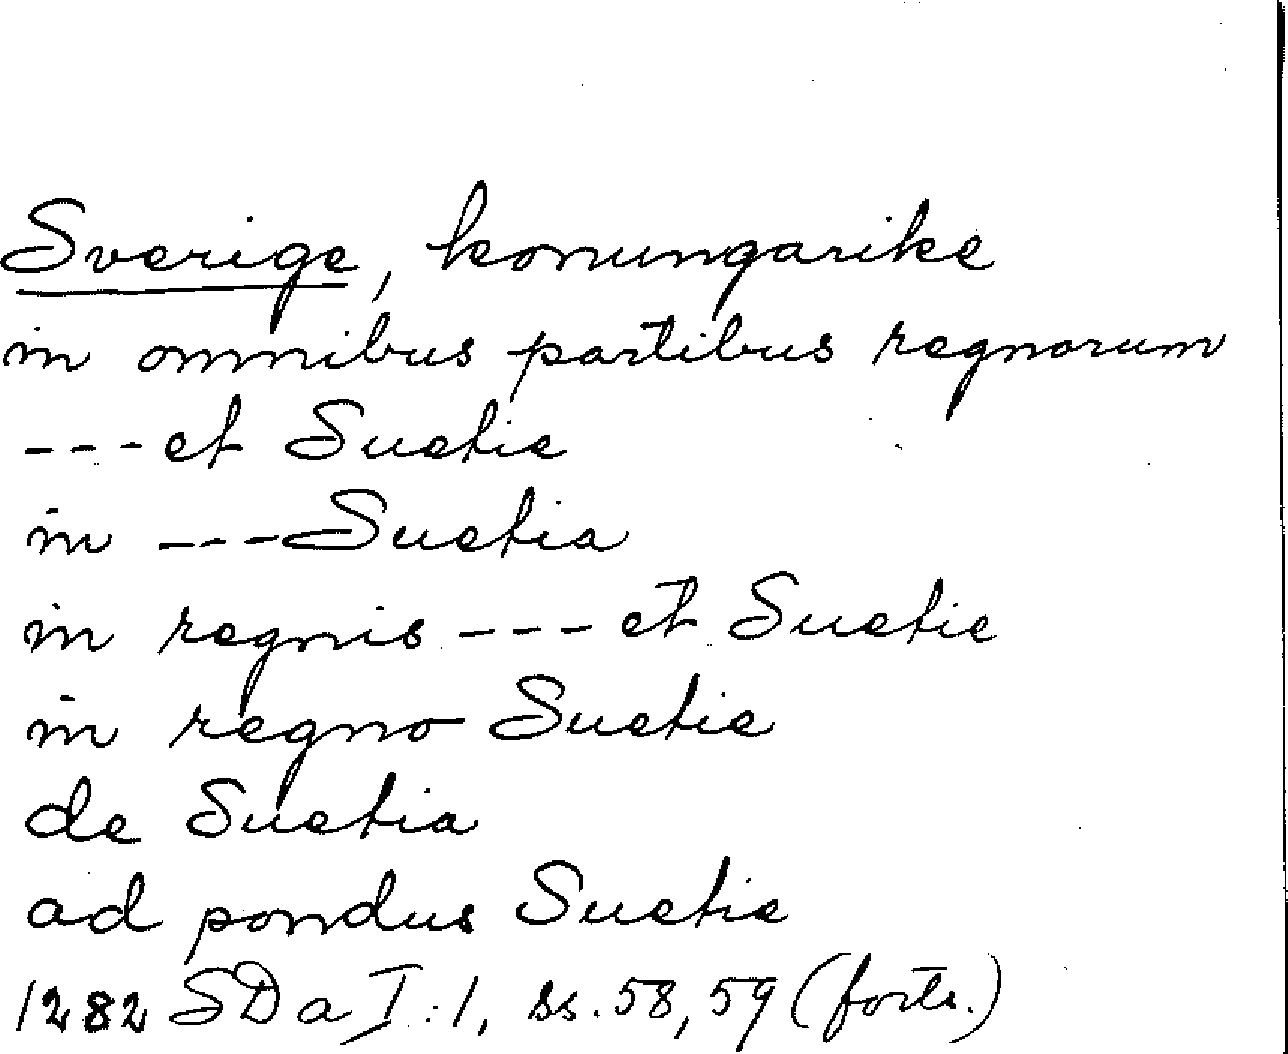 Sverige, konungarike
in omnibus partibus regnorum
--- et Suetie
in --- Suetia
in regnis --- et Suetie
in regno Suetie
de Suetia
ad pondus Suetie
1282 SDa I:1, ss. 58, 59 (forts.)